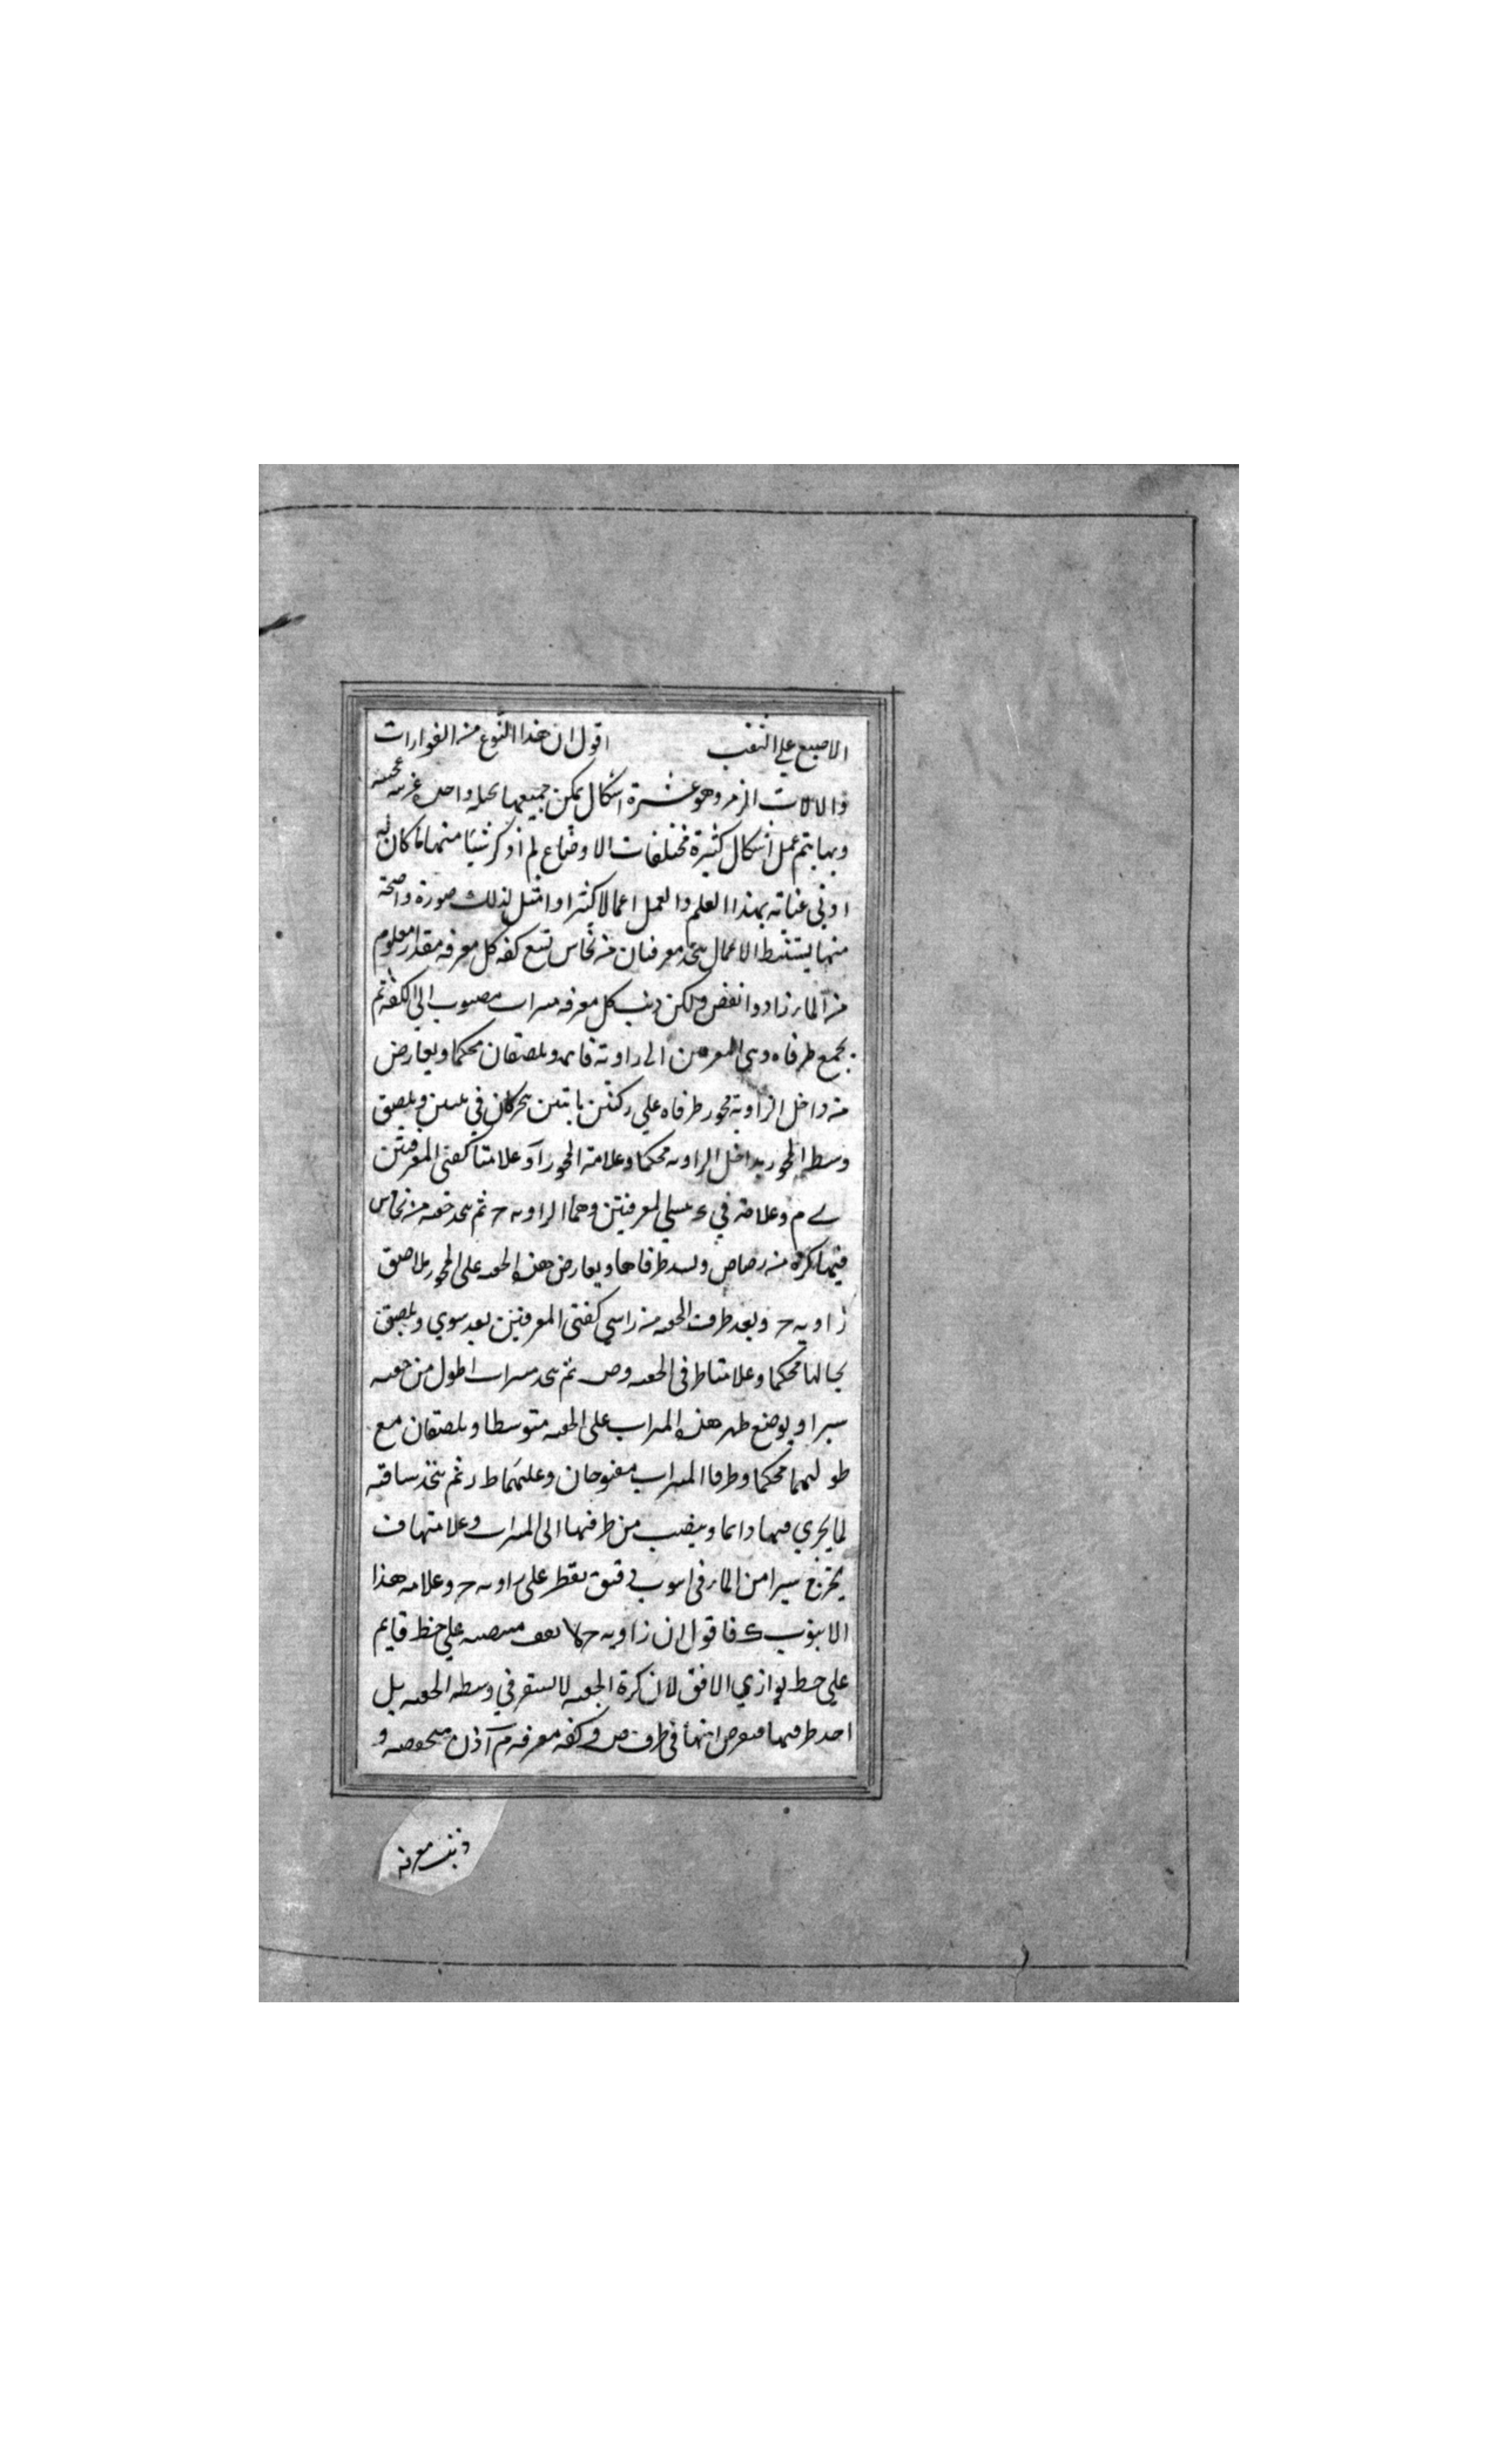 الاصبع علي الثقب اقول ان هذا النوع من الفوارات
والالات الزمر وهو عشرة اشكال يمكن جميعها بحيله واحده غريبه عجيبه
وبها يتم عمل اشكال كثيرة مختلفات الاوضاع لم اذكر شيئا منها ما كان له
ادني عناية بهذا العلم والعمل اعمالا كثيرا وامثل لذلك صورة واضحة
منها يستنبط الاعمال يتخذ مغرفتان من نحاس تسع كفه كل مغرفه مقدار معلوم
من الماء زاد وانقص وليكن ذنب كل مغرفه ميزاب مصبوب الي الكفه ثم
يجمع طرفاه المغرفتين الي زاويه قايمه ويلصقان محكما ويعارض
من داخل الزاوية محور طرفاه علي ركنين ثابتين يتحركان في بيتين ويلصق
وسط المحور بداخل الزاويه محكما وعلامة المحور آ وعلامتا كفتي المغرفتين
ے م وعلامة المغرفتين وهما الزاويه ح ثم يتخذ حقه من نحاس
فيها كرة من رصاص ويسد طرفاها ويعارض هذه الحقه علي المحور ملاصق
زاويه ح وبعد طرفي الحقه من راسي كفتي المغرفتين بعد سوي ويلصق
بحالها محكما وعلامتا طرفي الحقه وص ثم يتخذ ميزاب اطول من حقه
يسيرا ويوضع ظهر هذه الميزاب علي الحقه متوسطا ويلصقان مع
طوليهما محكما وطرفا الميزاب مفتوحان وعليهما ط ر ثم يتخذ ساقيه
لما يجري فيها دايما وينصب من طرفها الي الميزاب وعلامتها ف
يخرج يسيرا من الماء في انبوب دقيق يقطر علي زاويه ح وعلامه هذا
الانبوب ك فاقول ان زاويه ح لا تقف منتصبه علي خط قايم
علي خط يوازي الافق لان كرة الحقه لا تستقر في وسط الحقه بل
احد طرفيها فنفرض انها في طرف ص وكفه مغرفه م آذن منخفضه و
ذنب مغرفه